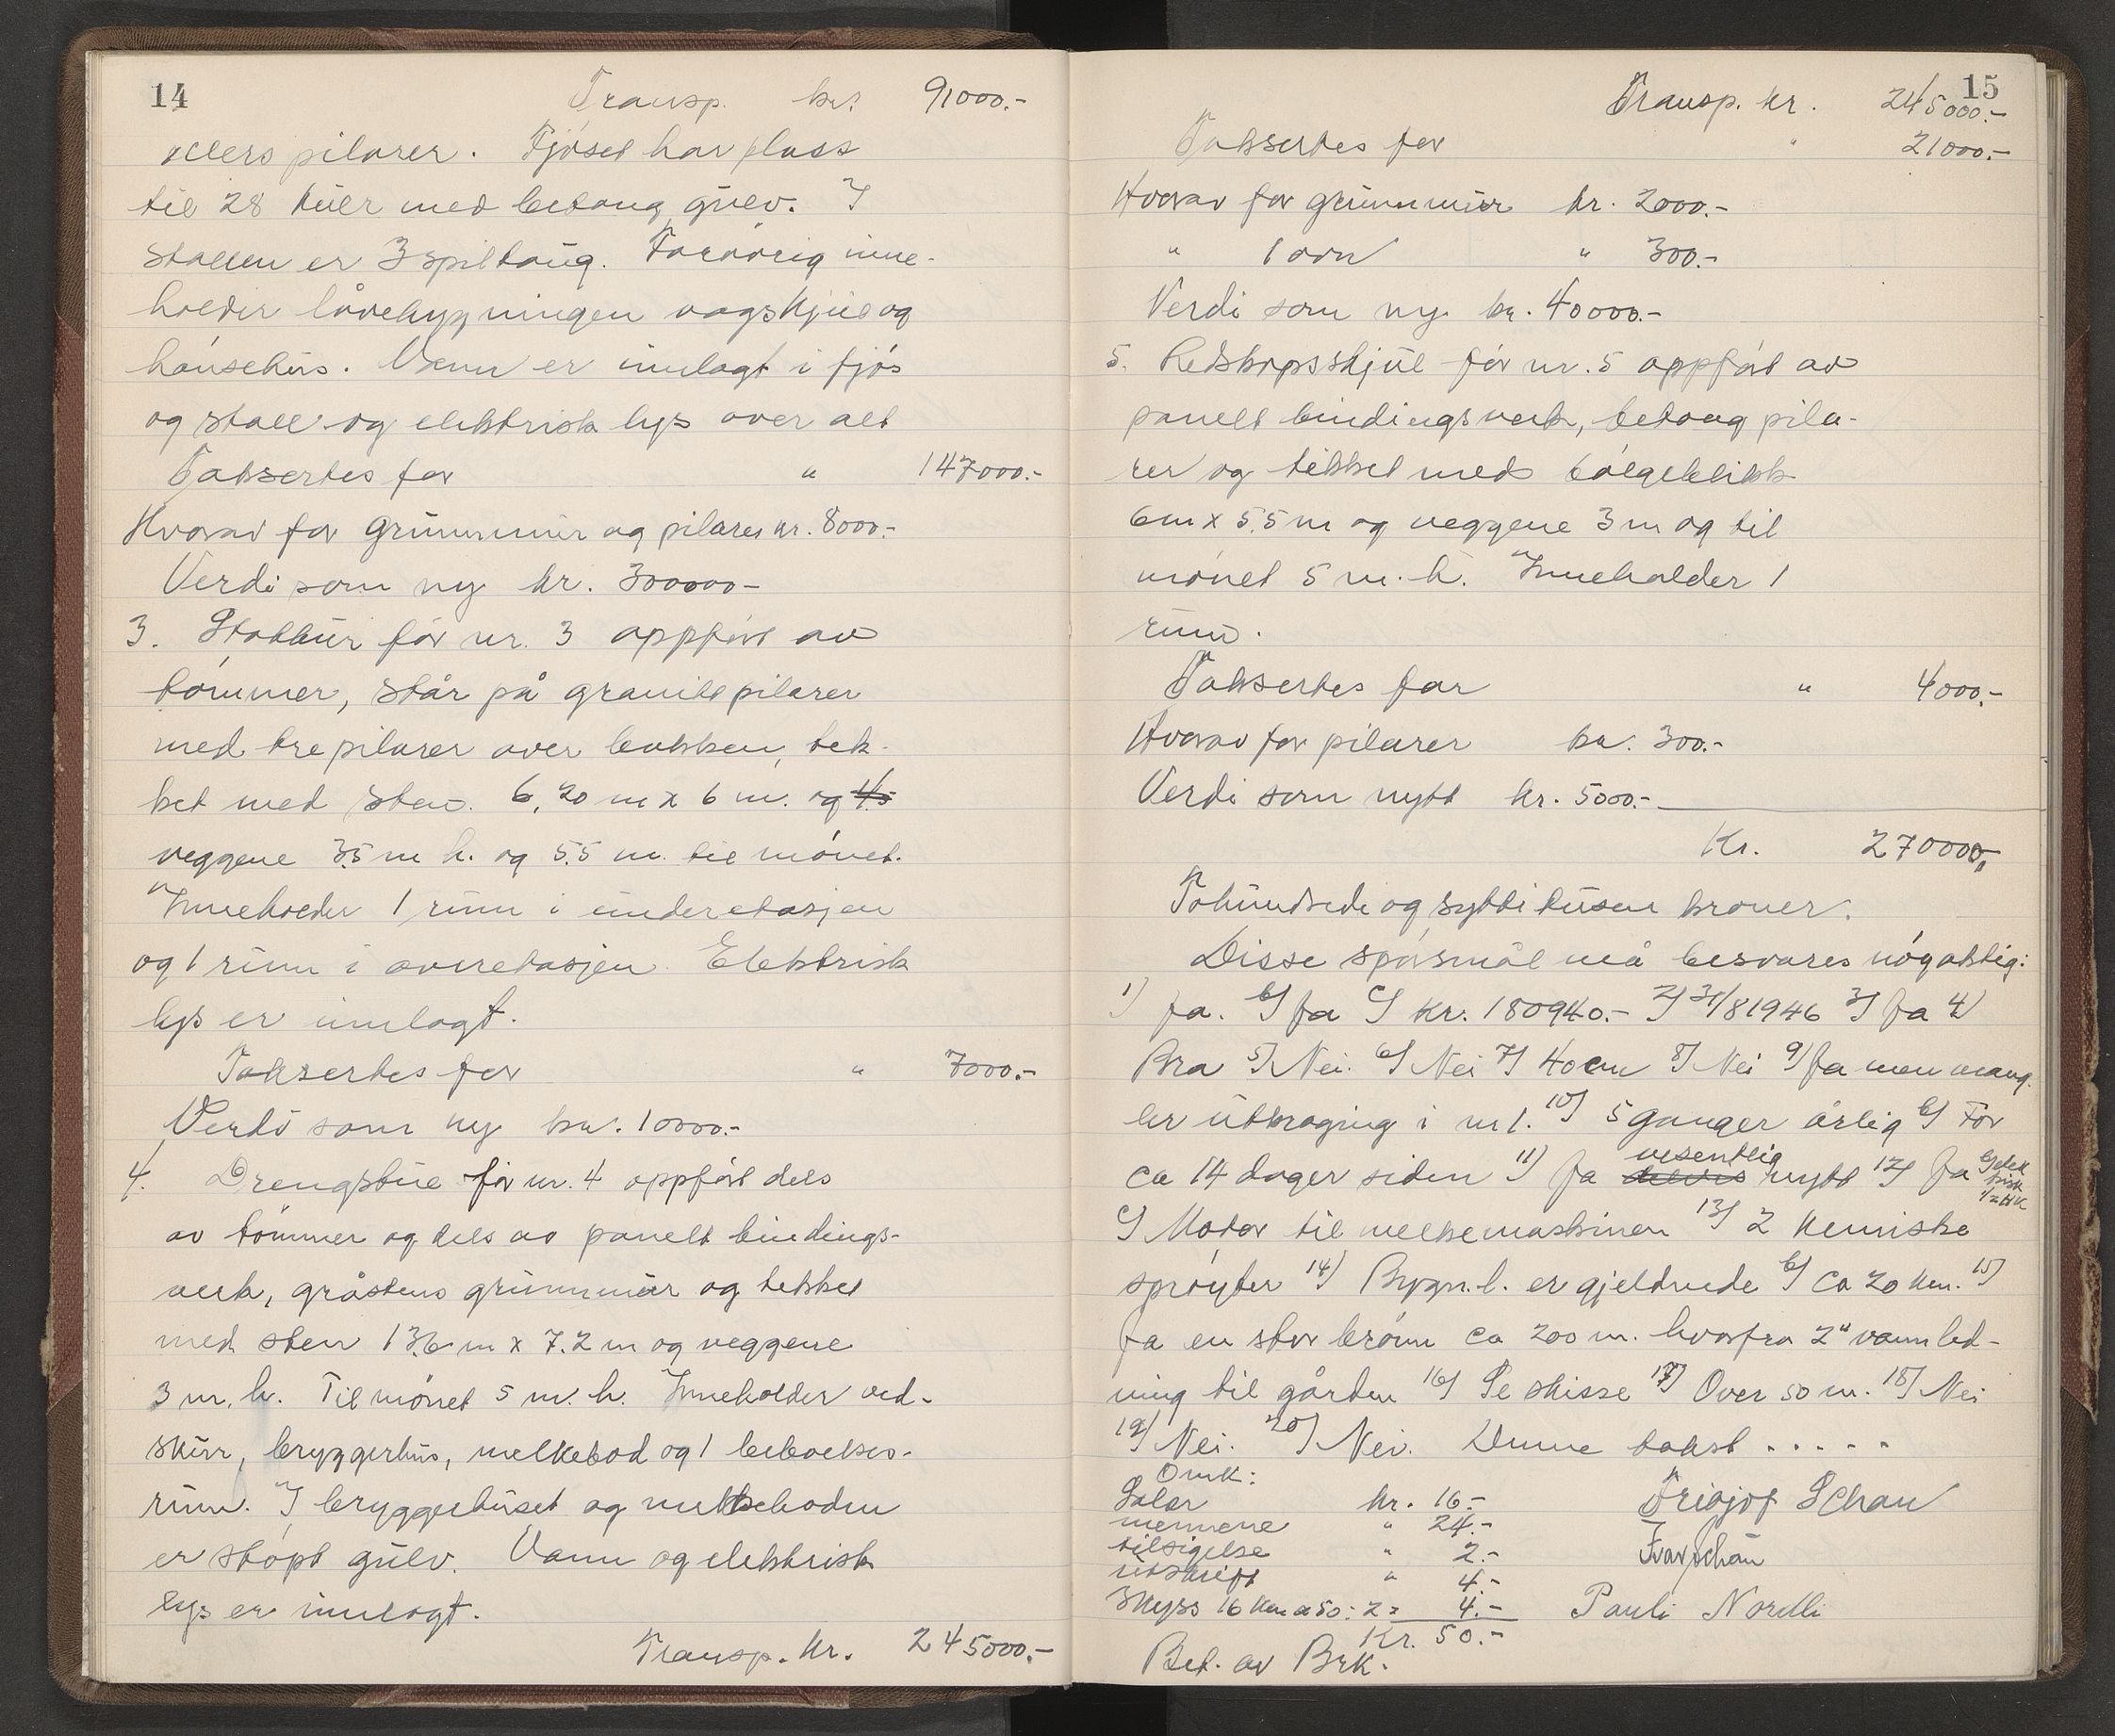 14
Transp. kr. 91000.-
ellers pilarer. Fjöset har plass
til 28 kuer med betong gulv. I
stallen er 3 spiltaug. Foróvrig inne-
holder låvebygningen vogskjul og
hónsehus. Vann er innlagt i fjós
og stall og elektrisk lys over alt
Taksertes for " 147000.-
Hvorav for grunnmur og pilarer kr. 8000.-
Verdi som ny kr. 300000-
3. Stabbur fór nr. 3 oppfórt av
tómmer, står på granittpilarer
med trepilarer over bakken, tek-
ket med sten. 6,20 m x 6 m. og 4.5
veggene 3,5 m h. og 5.5 m. til mónet.
Inneholder 1 rum i underetasjen
og 1 rum i overetasjen. Elektrisk
lys er innlagt.
Taksertes for " 7000.-
Verdi som ny kr. 10000.-
4. Drengstue fór nr. 4 oppfórt dels
av tómmer og dels av panelt bindings-
verk, gråstens grunnmur og tekket
med sten 13,6 m x 7.2 m og veggene
3 m. h. Til mónet 5 m. h. Inneholder ved-
skur, bryggerhus, melkebod og 1 beboelses-
rum. I bryggerhuset og melkeboden
er stópt gulv. Vann og elektrisk
lys er innlagt.
Transp. kr. 245000.-
15
Transp. kr. 245000.-
Taksertes for " 21000.-
Hvorav for grunnmur kr. 2000.-
" 1 ovn " 300.-
Verdi som ny kr. 40000.-
5. Redskapsskjul fór nr. 5 oppfórt av
panelt bindingsverk, betong pila-
rer og tekket med bólgeblikk
6m x 5,5 m og veggene 3 m og til
mónet 5 m. h. Inneholder 1
rum.
Taksertes for " 4000.-
Hvorav for pilarer kr. 300.-
Verdi som nytt kr. 5000.-
Kr. 270000,
Tohundrede og sytti tusen kroner.
Disse spórsmål må besvares nógaktig:
1) Ja. b) Ja c) Kr. 180940.- 2) 31/8 1946 3) Ja 4)
Bra 5) Nei. 6) Nei 7) 40 cm 8) Nei 9) Ja men mang-
ler utkraging i nr 1. 10) 5 ganger årlig b) For
ca 14 dager siden 11) Ja delvis vesentlig nytt 12) Ja b) elek
trisk
1/2 HK
c) Motor til melkemaskinen 13) 2 kemiske
spróyter 14) Bygn.l. er gjeldende b) Ca 20 km. 15)
Ja en stor brónn ca 200 m. hvorfra 2" vannled-
ning til gården 16) Se skisse 17) Over 50 m. 18) Nei
19) Nei. 20) Nei. Denne takst .....
Omk:
Salær kr. 16.-
mennene " 24.-
tilsigelse " 2.-
utskrift " 4.-
Skyss 16 km a 50: 2 = 4.-
Kr. 50.-
Bet. av Brk.
Fridjof Schau
Ivar Schau
Pauli Norelli